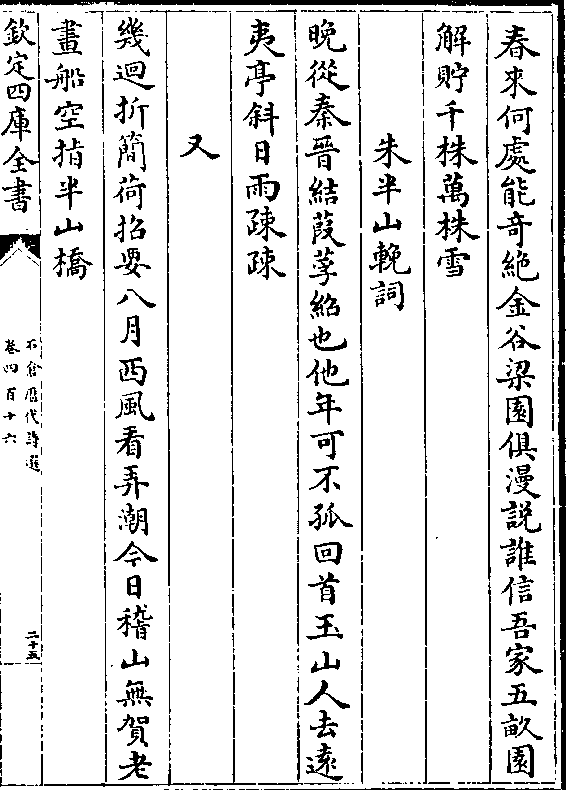 春來何處能奇絶金谷梁園俱漫説誰信吾家五畝園
解貯千株萬株雪
朱半山輓詞
晩從秦晉結葭莩紹也他年可不孤回首玉山人去遠
夷亭斜日雨疎疎
又
幾迴折簡荷招要八月西風看弄潮今日稽山無賀老
畫船空指半山橋
欽定四庫全書
石倉歴代詩選
卷四百十六
二十五